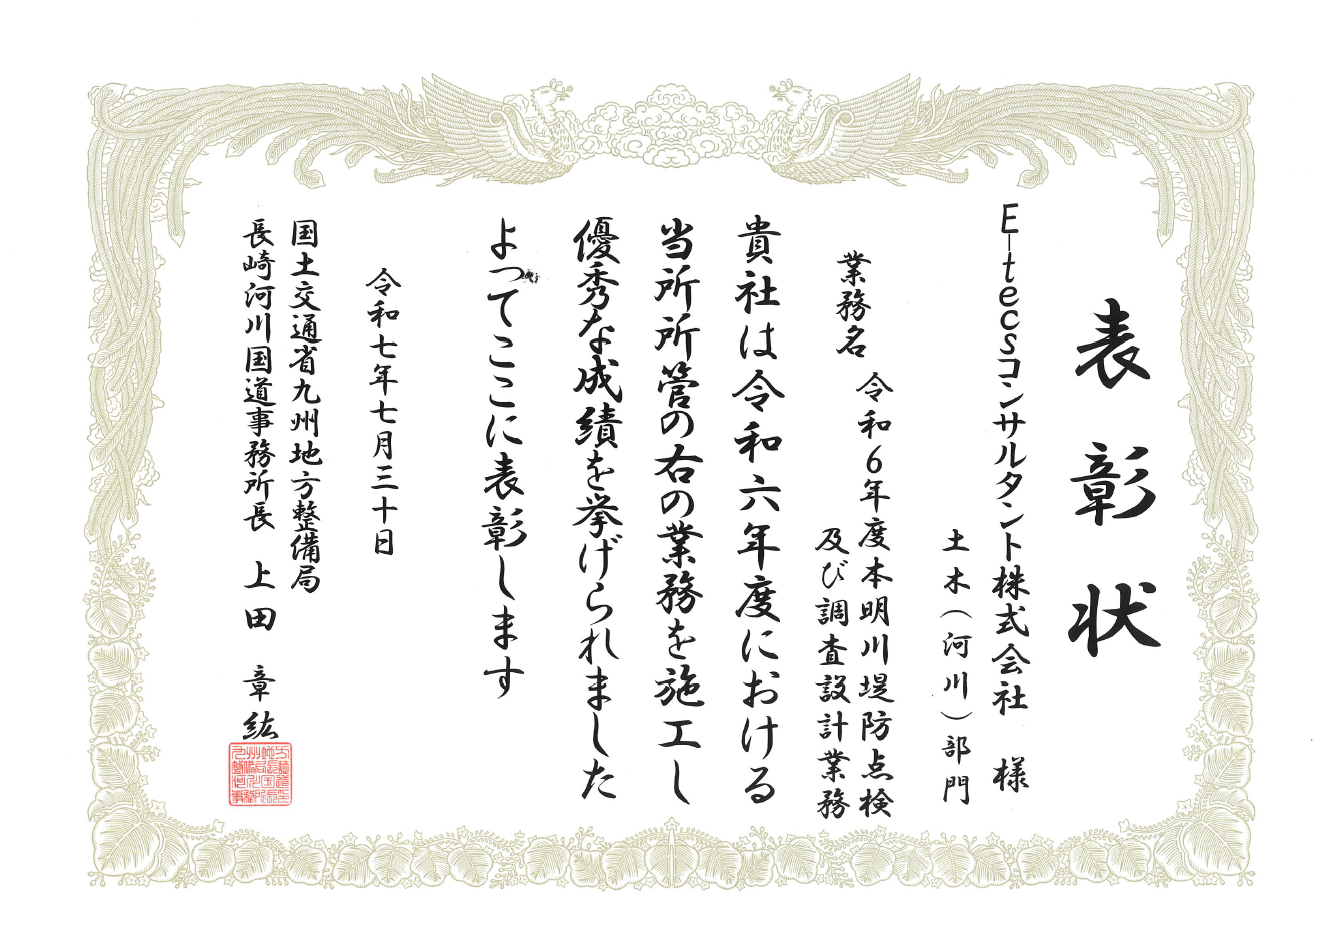 表彰状
E-tecsコンサルタント株式会社 様
土木(河川)部門
業務名 令和6年度本明川堤防点検
及び調査設計業務
貴社は令和六年度における
当所所管の右の業務を施工し
優秀な成績を挙げられました
よってここに表彰します
令和七年七月三十日
国土交通省九州地方整備局
長崎河川国道事務所長 上田 章紘